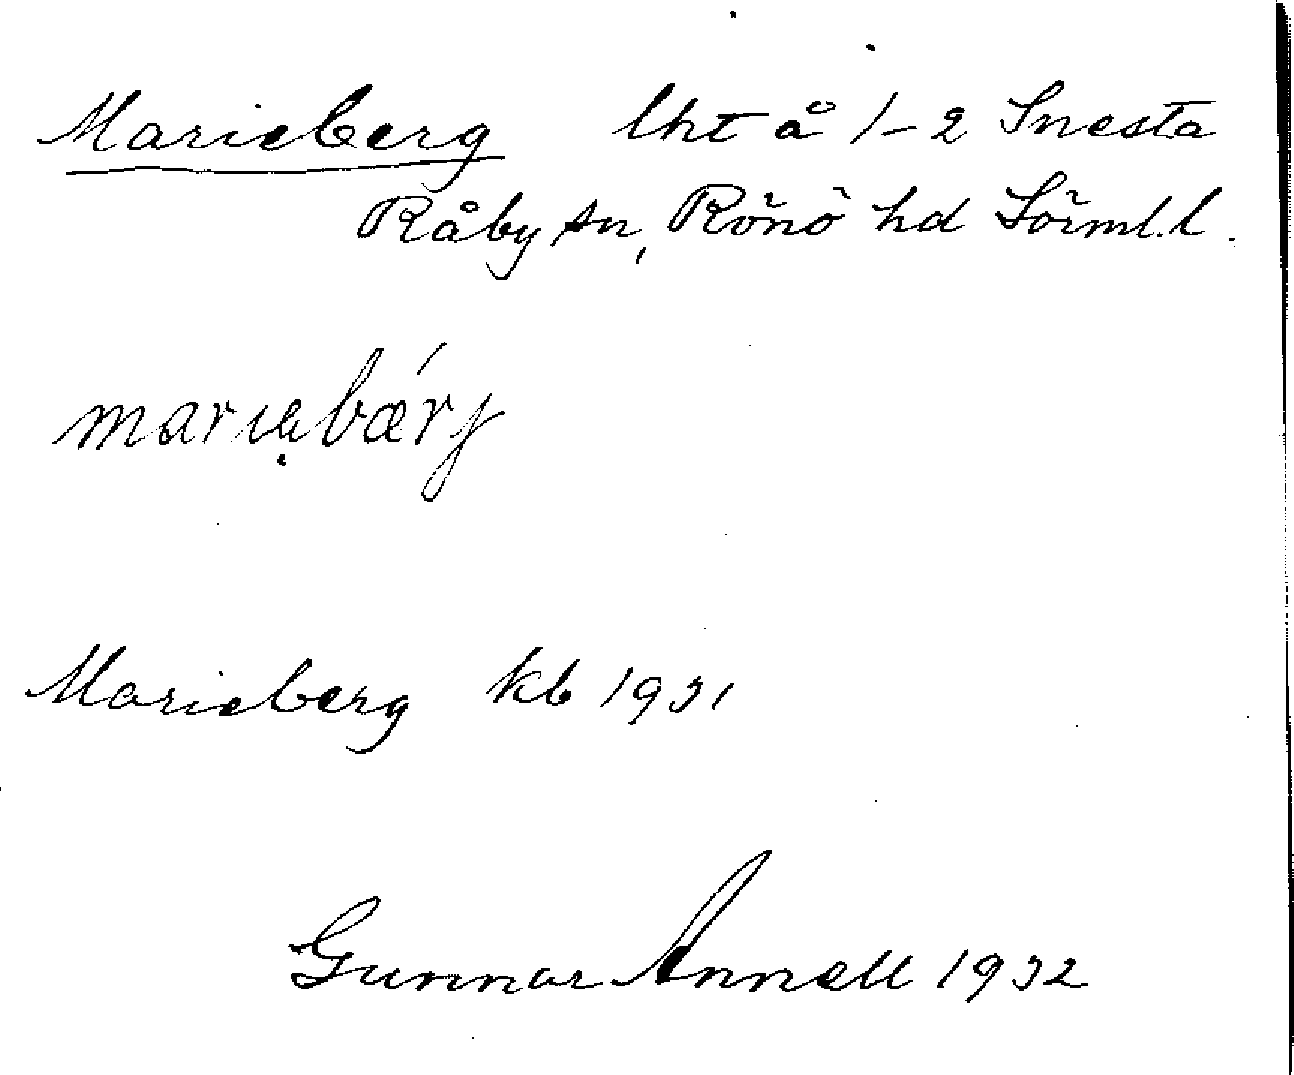 Marieberg lht å 1-2 Snesta
Råby sn, Rönö hd Sörml. l.
mariebærj
Marieberg kb 1931
Gunnar Annell 1932